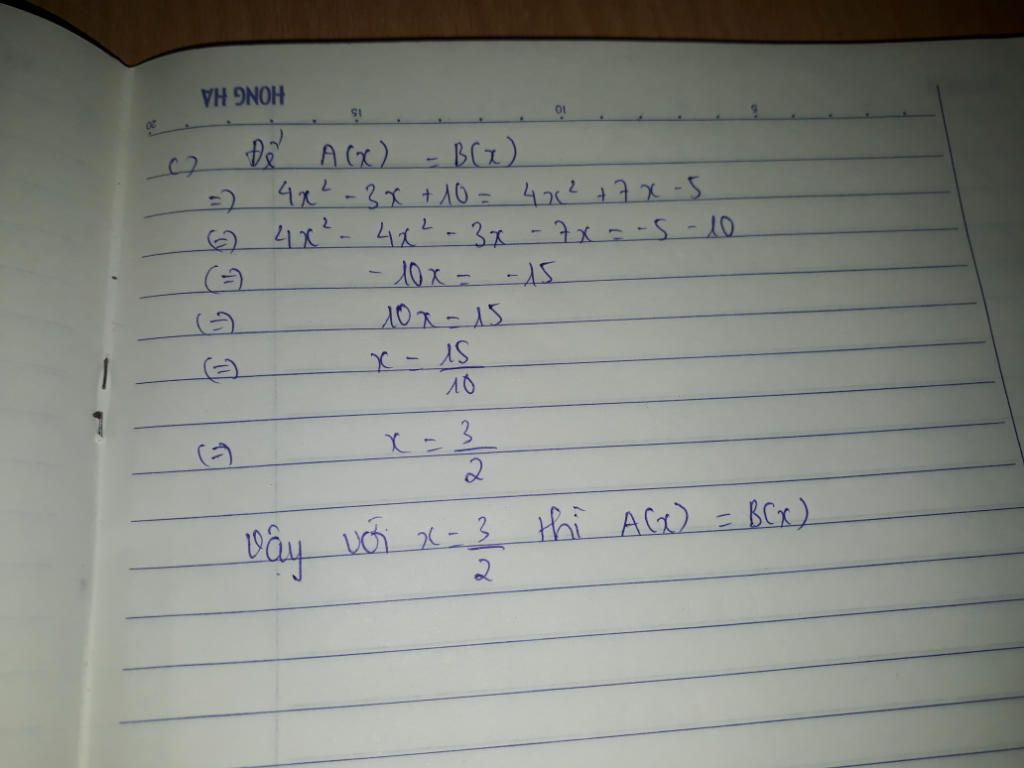 HONG HA
20 15 10 5
c) Để A(x) = B(x)
=) 4x² - 3x + 10 = 4x² + 7x - 5
(=) 4x² - 4x² - 3x - 7x = -5 - 10
(=) - 10x = -15
(=) 10x = 15
(=) x = 15/10
(=) x = 3/2
Vậy với x = 3/2 thì A(x) = B(x)